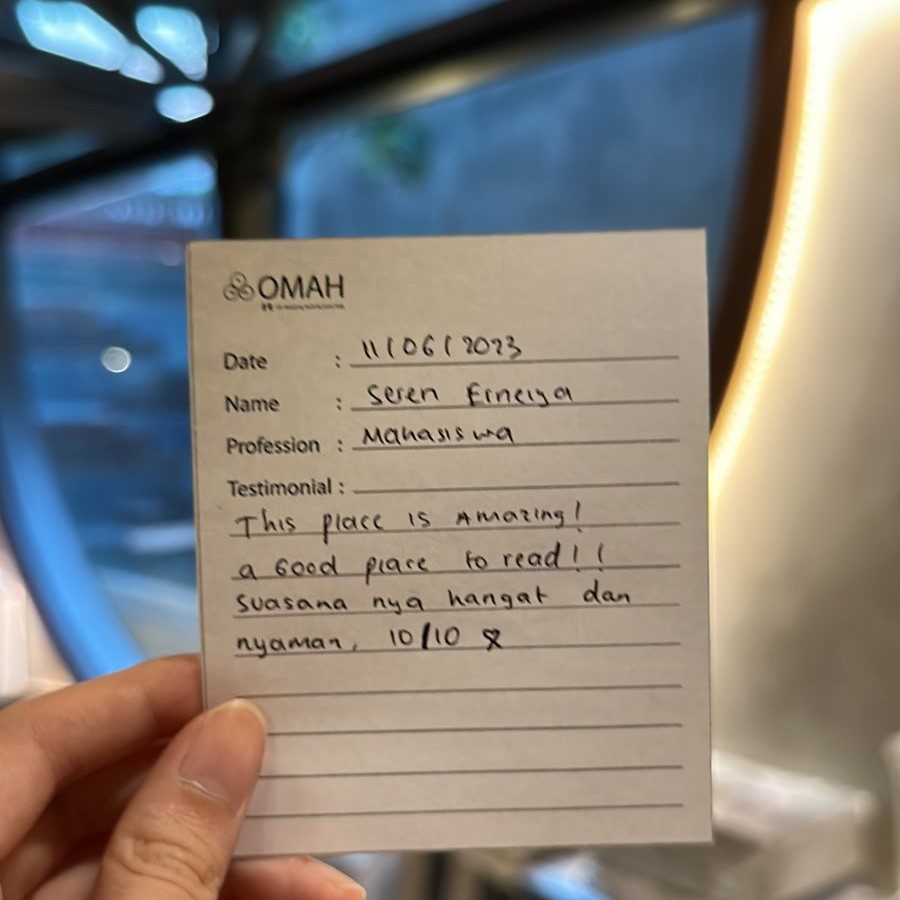 OMAH
Date : 11/06/2023
Name : Seren Erneiya
Profession : Mahasiswa
Testimonial :
This place is Amazing!
a Good place to read!!
Suasana nya hangat dan
nyaman, 10/10